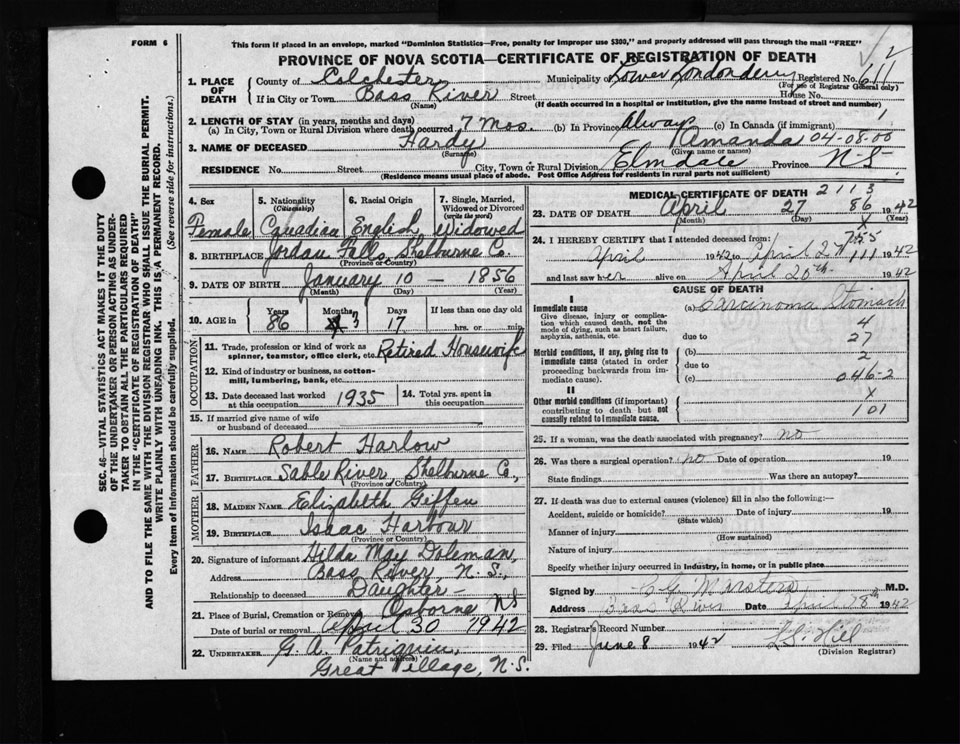 FORM 6
This form if placed in an envelope, marked "Dominion Statistics—Free, penalty for improper use $300," and properly addressed will pass through the mail "FREE"
PROVINCE OF NOVA SCOTIA—CERTIFICATE OF REGISTRATION OF DEATH
SEC. 46—VITAL STATISTICS ACT MAKES IT THE DUTY
OF THE UNDERTAKER OR PERSON ACTING AS UNDER-
TAKER TO OBTAIN ALL THE PARTICULARS REQUIRED
IN THE "CERTIFICATE OF REGISTRATION OF DEATH"
AND TO FILE THE SAME WITH THE DIVISION REGISTRAR WHO SHALL ISSUE THE BURIAL PERMIT.
WRITE PLAINLY WITH UNFADING INK. THIS IS A PERMANENT RECORD.
Every item of information should be carefully supplied. (See reverse side for instructions.)
1. PLACE OF DEATH County of Colchester Municipality of Lower Londonderry Registered No. 611
(For use of Registrar General only)
If in City or Town Bass River Street House No.
(Name) (If death occurred in a hospital or institution, give the name instead of street and number)
2. LENGTH OF STAY (in years, months and days)
(a) In City, Town or Rural Division where death occurred 7 Mos. (b) In Province Always (c) In Canada (if immigrant) 1
3. NAME OF DECEASED Hardy Amanda 04-08-00
(Surname) (Given name or names)
RESIDENCE No. Street City, Town or Rural Division Elmdale Province N-S-
(Residence means usual place of abode. Post Office Address for residents in rural parts not sufficient)
4. Sex Female
5. Nationality (Citizenship) Canadian
6. Racial Origin English
7. Single, Married, Widowed or Divorced (write the word) Widowed
8. BIRTHPLACE Jordan Falls, Shelburne Co.
(Province or Country)
9. DATE OF BIRTH January 10 — 1856
(Month) (Day) (Year)
10. AGE in Years 86 Months 3 Days 17 If less than one day old hrs. or min.
OCCUPATION
11. Trade, profession or kind of work as spinner, teamster, office clerk, etc. Retired Housewife
12. Kind of industry or business, as cotton-mill, lumbering, bank, etc.
13. Date deceased last worked at this occupation 1935 14. Total yrs. spent in this occupation
15. If married give name of wife or husband of deceased
FATHER
16. NAME Robert Harlow
17. BIRTHPLACE Sable River, Shelburne Co.,
(Province or Country)
MOTHER
18. MAIDEN NAME Elizabeth Geffen
19. BIRTHPLACE Isaac Harbour
(Province or Country)
20. Signature of informant Hilda May Doleman,
Address Bass River, N.S.,
Relationship to deceased Daughter—
21. Place of Burial, Cremation or Removal Osborne NS
Date of burial or removal April 30 1942
22. UNDERTAKER G. A. Patriquin,
(Name and address)
Great Village, N.S.
MEDICAL CERTIFICATE OF DEATH 2113
23. DATE OF DEATH April 27 86 1942
(Month) (Day) (Year)
X
24. I HEREBY CERTIFY that I attended deceased from:
April 1942 to April 27 111 1942
and last saw her alive on April 20th 1942
CAUSE OF DEATH
I
Immediate cause (a) Carcinoma Stomach
Give disease, injury or complication which caused death, not the mode of dying, such as heart failure, asphyxia, asthenia, etc.
4
due to
27
Morbid conditions, if any, giving rise to immediate cause (stated in order proceeding backwards from immediate cause).
(b)
2
due to
(c) 046-2
II
X
Other morbid conditions (if important) contributing to death but not causally related to immediate cause.
101
25. If a woman, was the death associated with pregnancy? no
26. Was there a surgical operation? no Date of operation 19
State findings Was there an autopsy?
27. If death was due to external causes (violence) fill in also the following:—
Accident, suicide or homicide? Date of injury 19
(State which)
Manner of injury
(How sustained)
Nature of injury
Specify whether injury occurred in industry, in home, or in public place
Signed by M.D.
Address Bass River Date April 28th 1942
28. Registrar's Record Number
29. Filed June 8 1942
(Division Registrar)